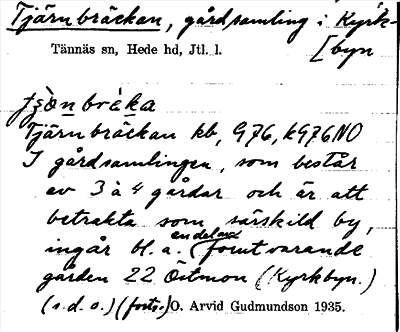 Tjärnbräckan, gårdsamling i Kyrk-
[byn
Tännäs sn, Hede hd, Jtl. l.
Tjärnbräckan kb, G76, kG76NO
I gårdsamlingen, som består
av 3 à 4 gårdar och är att
betrakta som särskild by,
en del av
ingår bl. a. (förutvarande
gården 22 Östmon (Kyrkbyn.)
(s.d.o.) (forts.) O. Arvid Gudmundson 1935.